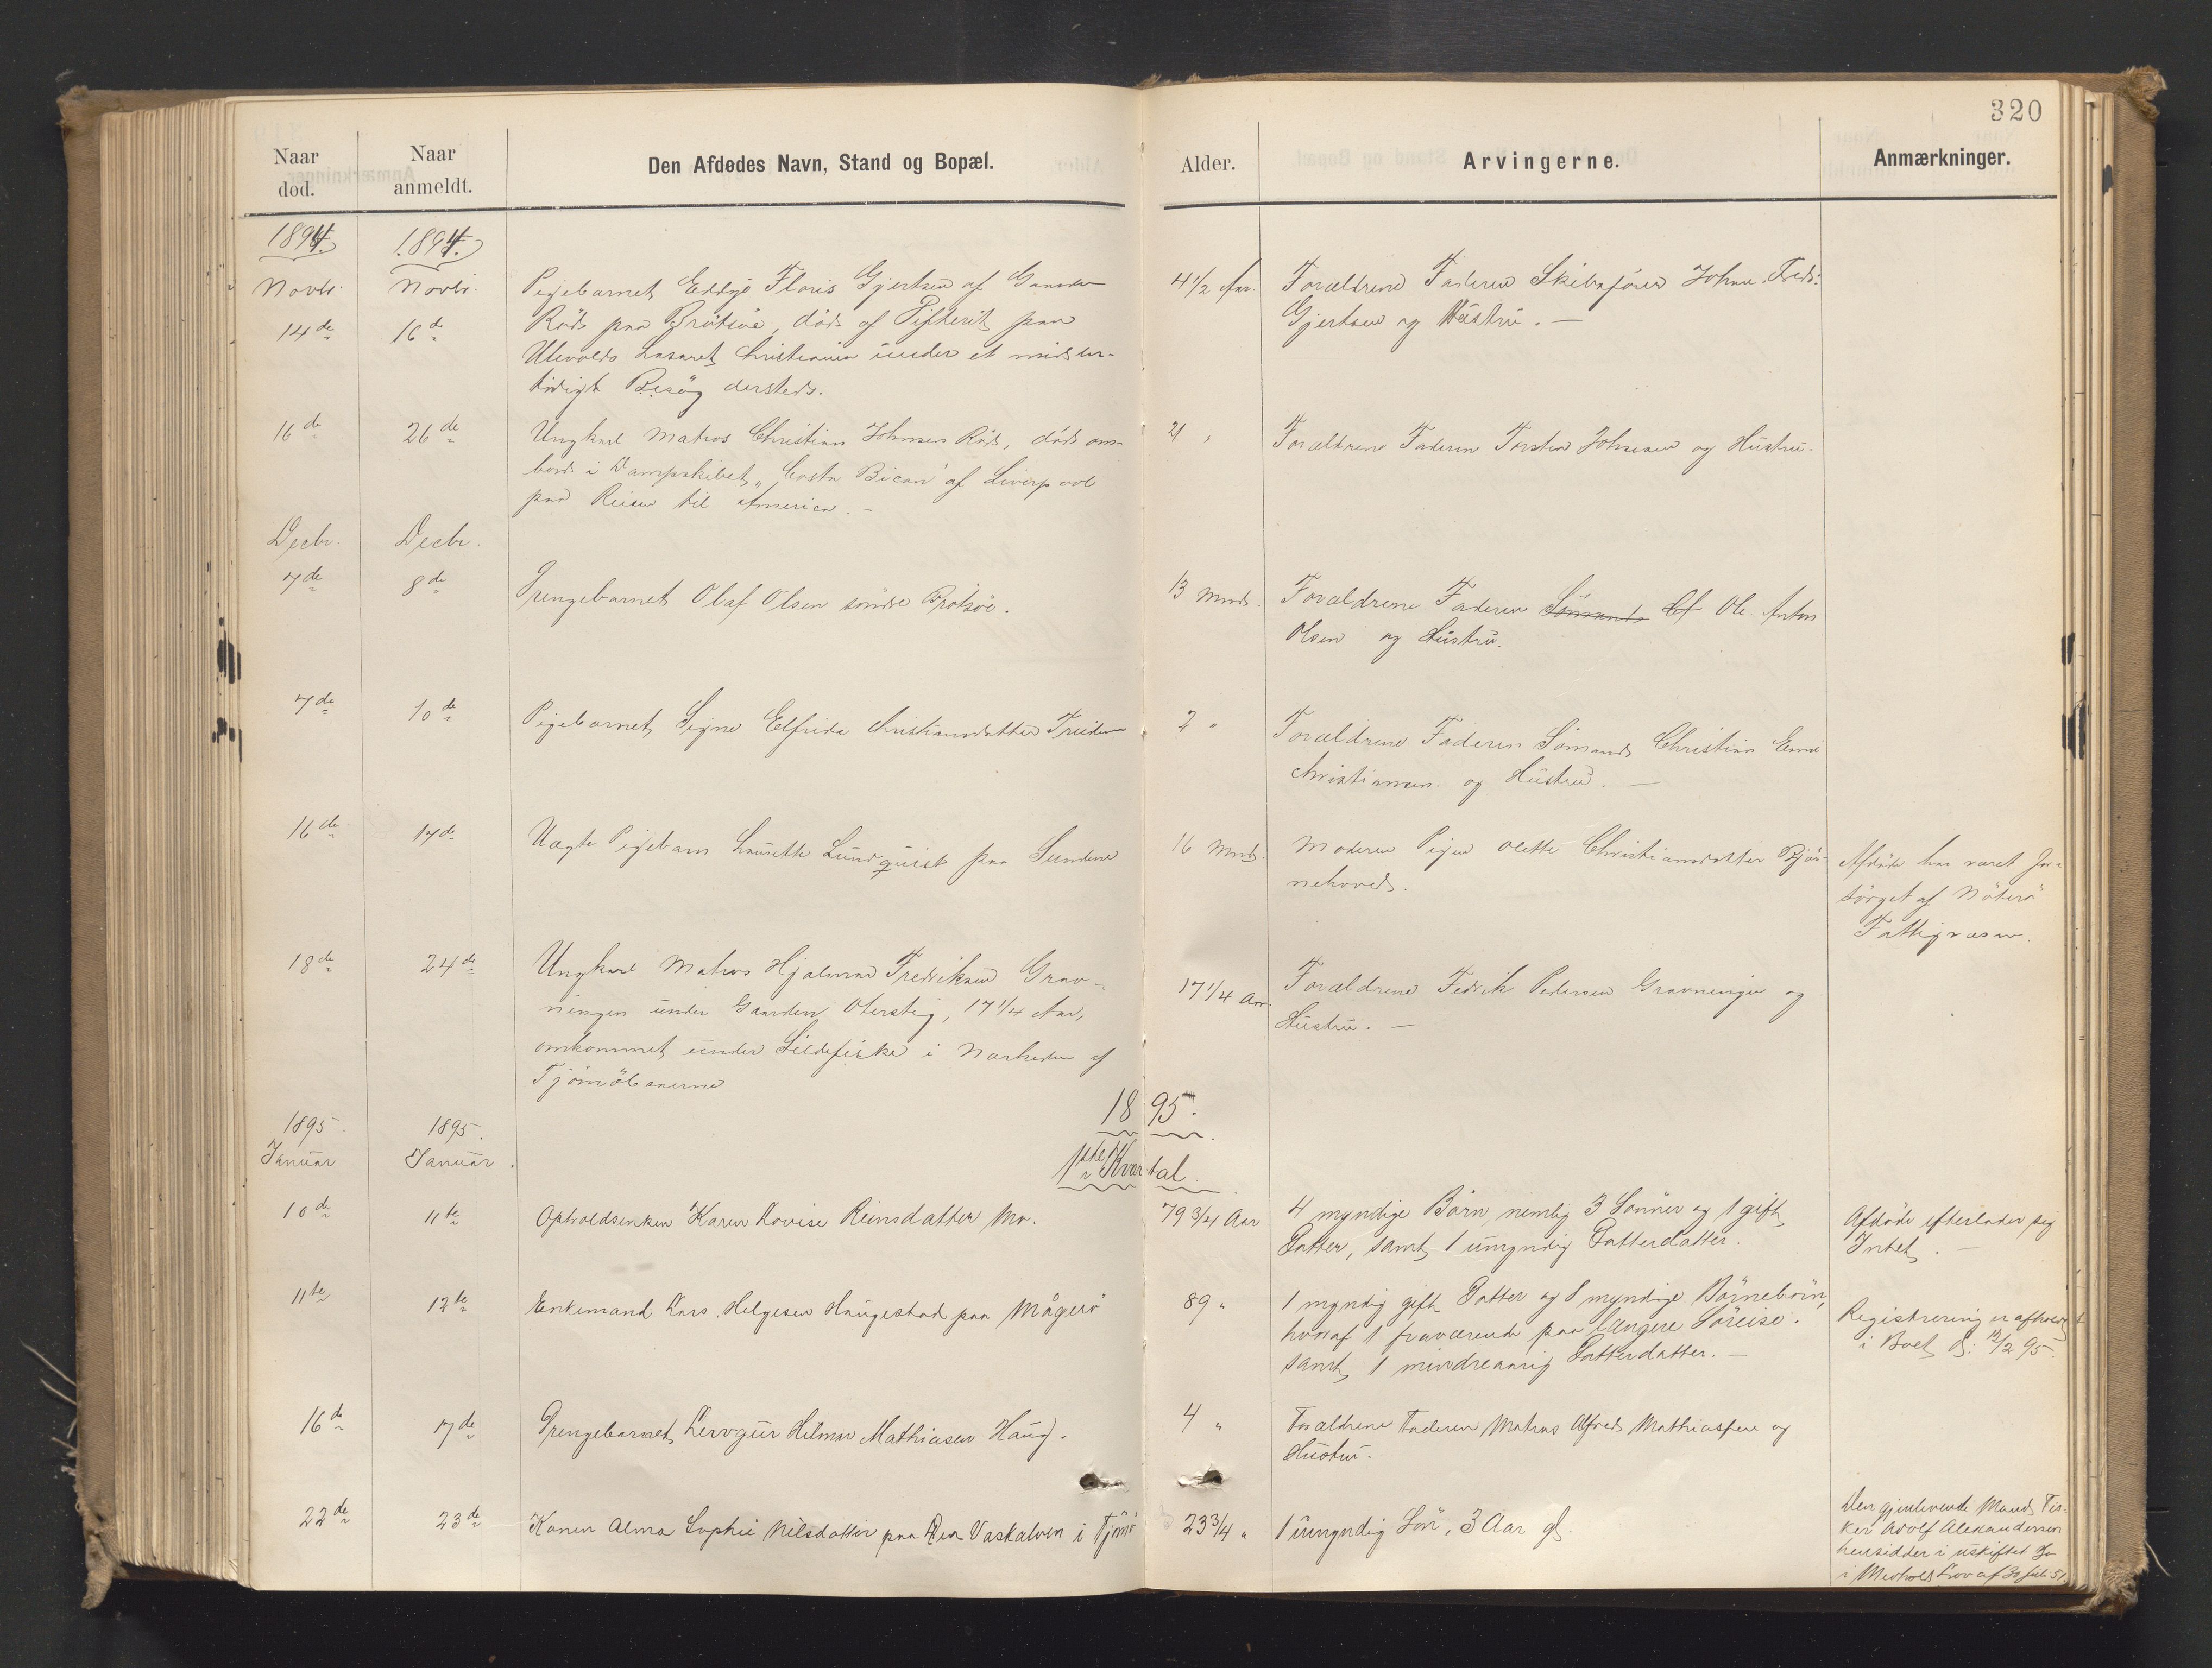 320
Naar død.
Naar anmeldt.
Den Afdødes Navn, Stand og Bopæl.
Alder.
Arvingerne.
Anmærkninger.
1894.
1894.
Novbr.
Novbr.
14de
16de
Pigebarnet Gjertsen af Gaarden
Röd paa Brötsöe, död af Difterit paa
Ulevolds Lasaret Christiania under et midler-
tidigt Besøg dersteds.
4 1/2 Aar.
Forældrene Faderen Skibsförer Johan Fredr.
Gjertsen og Hustru. —
16de
26de
Ungkarl Matros Christian Johnsen Röd, död om-
bord i Dampskibet „Costa Rican" af Liverpool
paa Reisen til America. —
21 "
Forældrene Faderen Torsten Johnsen og Hustru.
Decbr.
Decbr.
7de
8de
Drengebarnet Olaf Olsen söndre Brötsöe.
13 Mnds.
Forældrene Faderen Sömand Ole Anton
Olsen og Hustru.
7de
10de
Pigebarnet Signe Elfrida Christiansdatter
2 "
Forældrene Faderen Sömand Christian Emil
Christiansen og Hustru. —
16de
17de
Uægte Pigebarn Laurette Lundquist paa Sundene
16 Mnds.
Moderen Pigen Olette Christiansdatter Bjør-
nehoved.
Afdöde har været for-
sörget af Nöterö
Fattigvæsen.
18de
24de
Ungkarl Matros Hjalmar Fredriksen Grav-
ningen under Gaarden Oterstig, 17 1/4 Aar,
omkommet under Sildefiske i Nærheden af
Tjömöbaaerne
17 1/4 Aar.
Forældrene Fedrik Pedersen Gravningen og
Hustru. —
1895.
1ste Kvartal.
1895
1895.
Januar
Januar.
10de
11te
Opholdsenken Karen Lovise Reinsdatter Mo.
79 3/4 Aar
4 myndige Börn, nemlig 3 Sönner og 1 gift
Datter, samt 1 umyndig Datterdatter.
Afdöde efterlader sig
Intet. —
11te
12te
Enkemand Lars Helgesen Haugestad paa Mågerö
89 "
1 myndig gift Datter og 8 myndige Börnebörn,
hvoraf 1 fraværende paa længere Söreise.
samt 1 mindreaarig Datterdatter. —
Registrering er afholdt
i Boet d: 12/2 95.
16de
17de
Drengebarnet Hilmar Mathiasen Haug.
4 "
Forældrene Faderen Matros Alfred Mathiassen og
Hustru.
22de
23de
Konen Alma Sophie Nilsdatter paa Vaskalven i Tjömö
23 3/4 "
1 umyndig Sön, 3 Aar gl.
Den gjenlevende Mand, Fis-
ker Adolf Alexandersen
hensidder i uskiftet Bo
i Medhold Lov af 30 Juli 51